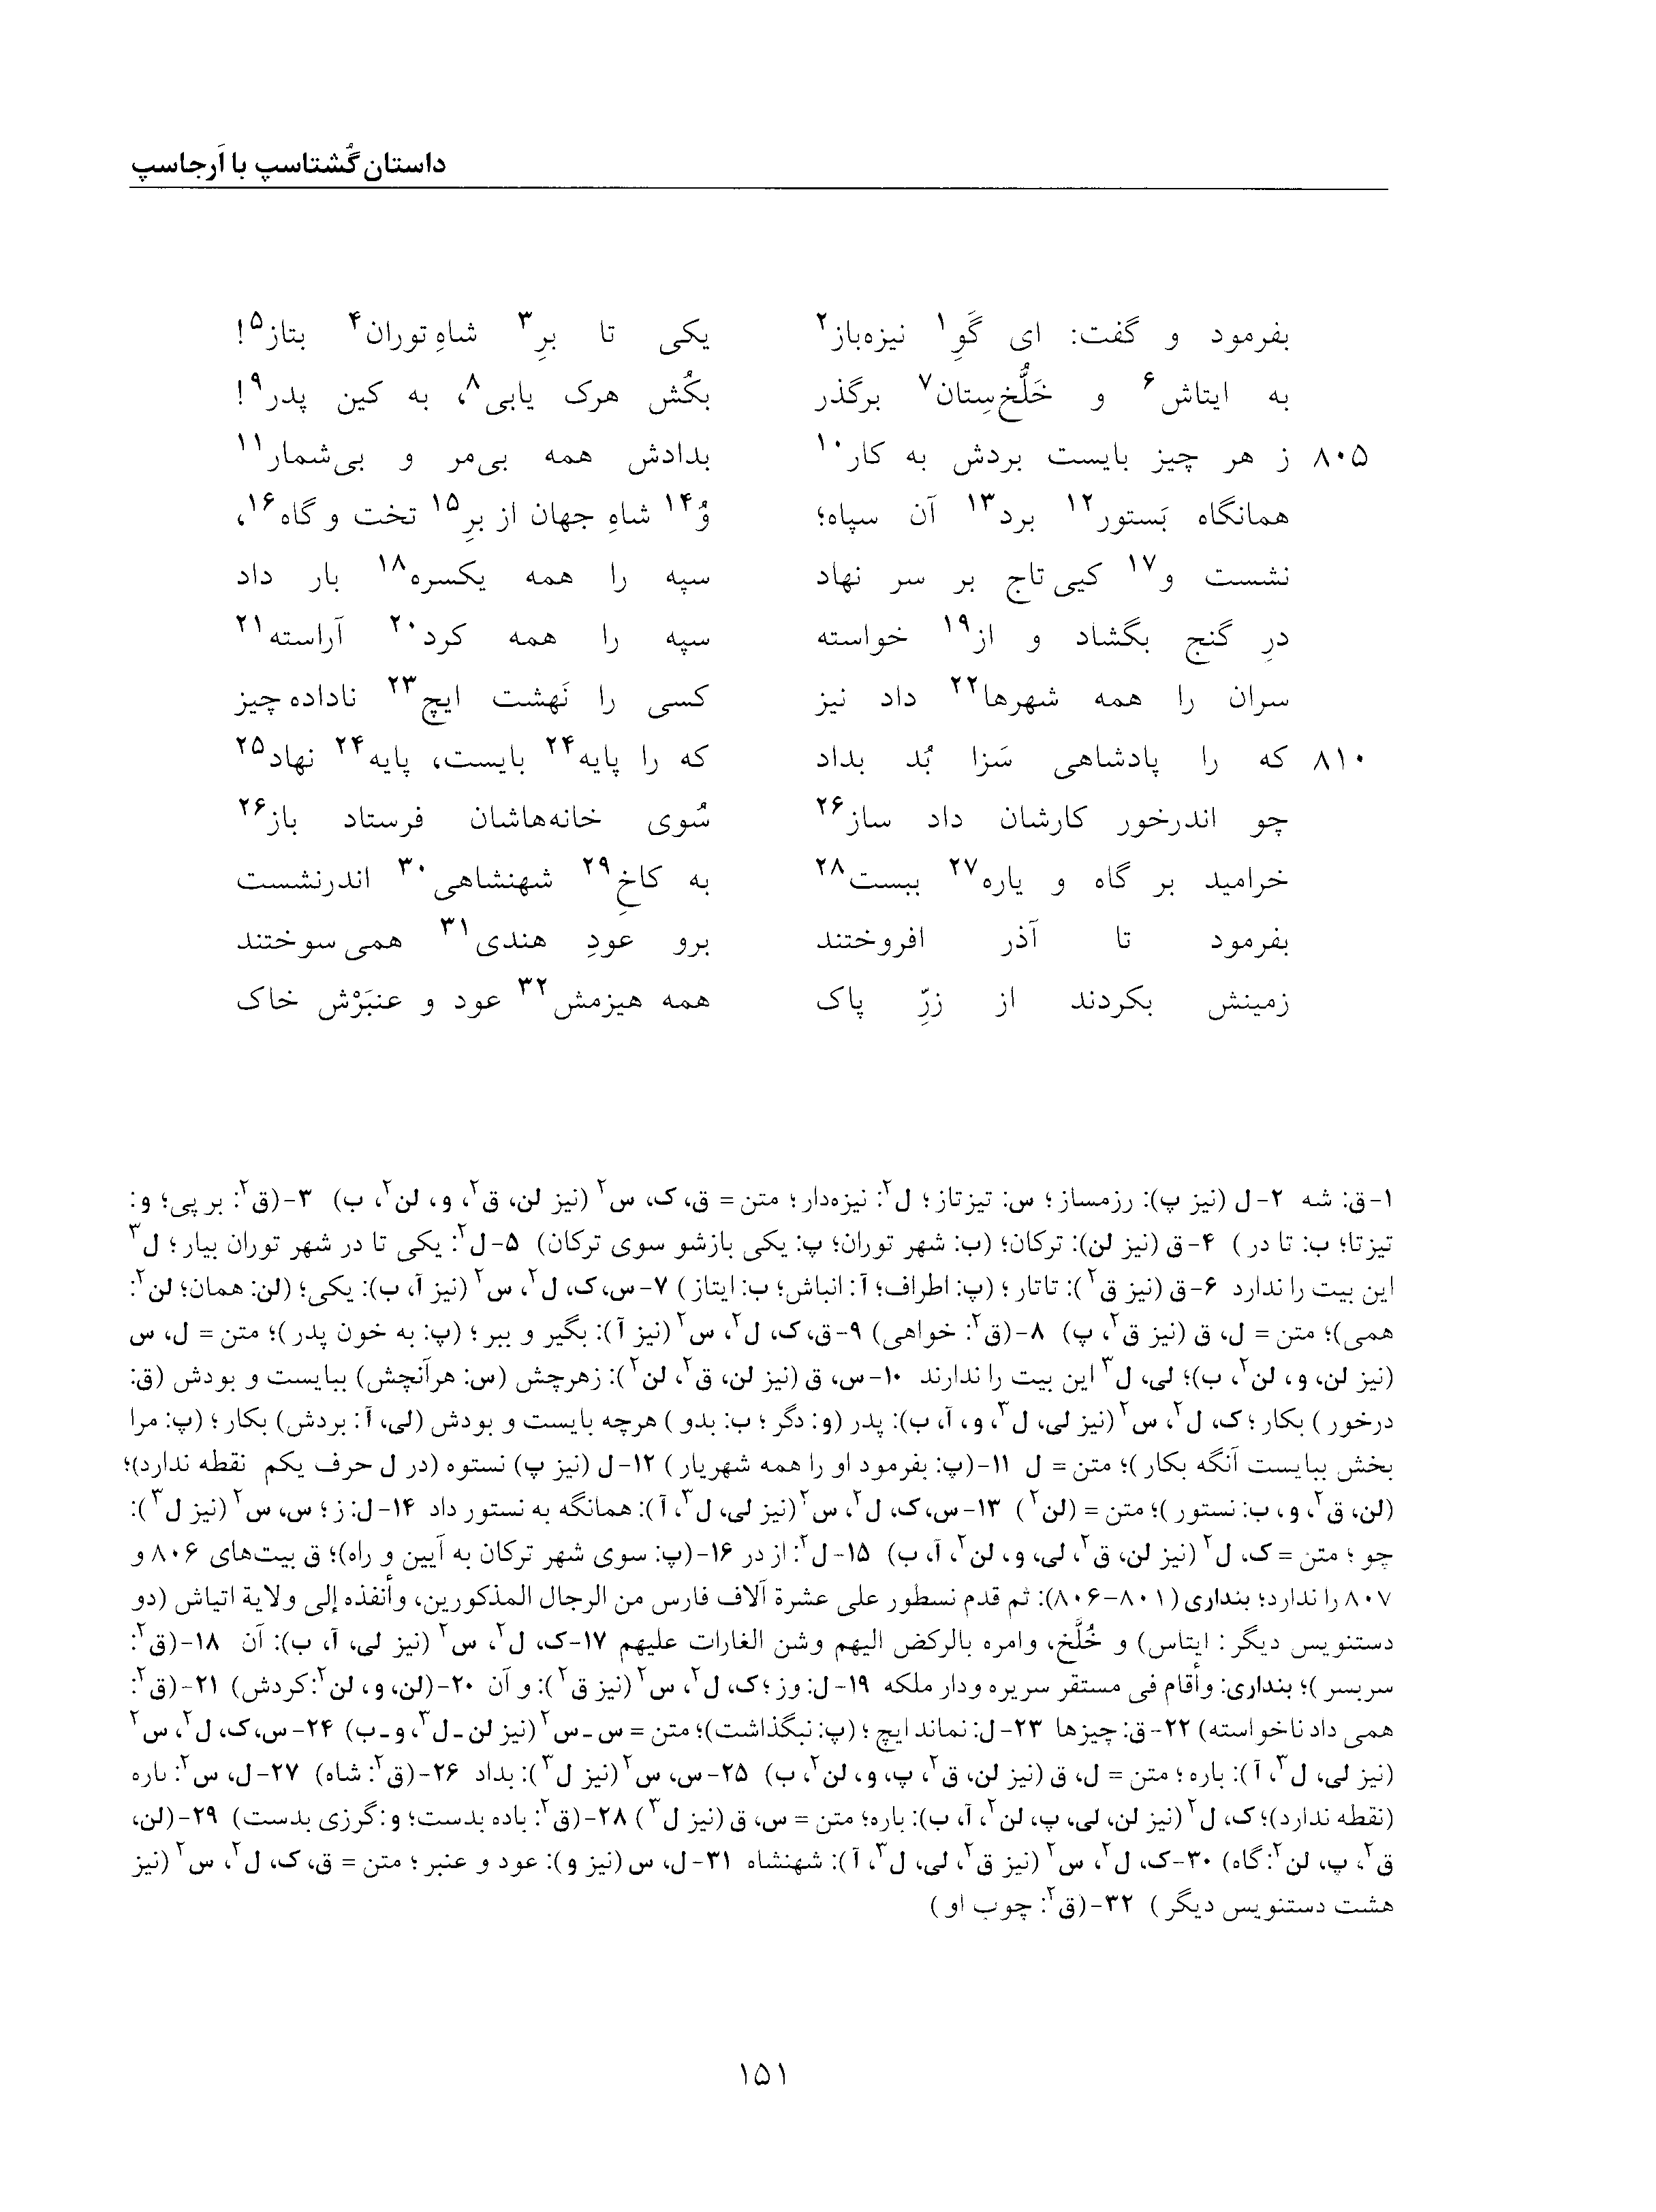 داستان گُشتاسپ با اَرجاسپ
بفرمود و گفت: ای گَوِ۱ نیزه‌باز۲ یکی تا برِ۳ شاهِ توران۴ بتاز۵!
به ایتاش۶ و خَلُّخ‌سِتان۷ برگذر بکُش هرک یابی۸، به کین پدر۹!
۸۰۵ ز هر چیز بایست بردش به کار۱۰ بدادش همه بی‌مر و بی‌شمار۱۱
همانگاه بَستور۱۲ برد۱۳ آن سپاه؛ وُ۱۴ شاهِ جهان از برِ۱۵ تخت و گاه۱۶،
نشست و۱۷ کیی تاج بر سر نهاد سپه را همه یکسره۱۸ بار داد
درِ گنج بگشاد و از۱۹ خواسته سپه را همه کرد۲۰ آراسته۲۱
سران را همه شهرها۲۲ داد نیز کسی را نَهشت ایچ۲۳ ناداده چیز
۸۱۰ که را پادشاهی سَزا بُد بداد که را پایه۲۴ بایست، پایه۲۴ نهاد۲۵
چو اندرخور کارشان داد ساز۲۶ سُوی خانه‌هاشان فرستاد باز۲۶
خرامید بر گاه و یاره۲۷ ببست۲۸ به کاخِ۲۹ شهنشاهی۳۰ اندرنشست
بفرمود تا آذر افروختند برو عودِ هندی۳۱ همی سوختند
زمینش بکردند از زرِّ پاک همه هیزمش۳۲ عود و عنبَرْش خاک
۱-ق: شه ۲-ل (نیز پ): رزمساز؛ س: تیزتاز؛ ل۲: نیزه‌دار؛ متن = ق، ک، س۲ (نیز لن، ق۲، و، لن۲، ب) ۳-(ق۲: بر پی؛ و:
تیزتا؛ ب: تا در) ۴-ق (نیز لن): ترکان؛ (ب: شهر توران؛ پ: یکی بازشو سوی ترکان) ۵-ل۲: یکی تا در شهر توران بیار؛ ل۳
این بیت را ندارد ۶-ق (نیز ق۲): تاتار؛ (پ: اطراف؛ آ: انباش؛ ب: ایتاز) ۷-س، ک، ل۲، س۲ (نیز آ، ب): یکی؛ (لن: همان؛ لن۲:
همی)؛ متن = ل، ق (نیز ق۲، پ) ۸-(ق۲: خواهی) ۹-ق، ک، ل۲، س۲ (نیز آ): بگیر و ببر؛ (پ: به خون پدر)؛ متن = ل، س
(نیز لن، و، لن۲، ب)؛ لی، ل۳ این بیت را ندارند ۱۰-س، ق (نیز لن، ق۲، لن۲): زهرچش (س: هرآنچش) ببایست و بودش (ق:
درخور) بکار؛ ک، ل۲، س۲ (نیز لی، ل۳، و، آ، ب): پدر (و: دگر؛ ب: بدو) هرچه بایست و بودش (لی، آ: بردش) بکار؛ (پ: مرا
بخش ببایست آنگه بکار)؛ متن = ل ۱۱-(پ: بفرمود او را همه شهریار) ۱۲-ل (نیز پ) نستوه (در ل حرف یکم نقطه ندارد)؛
(لن، ق۲، و، ب: نستور)؛ متن = (لن۲) ۱۳-س، ک، ل۲، س۲ (نیز لی، ل۳، آ): همانگه به نستور داد ۱۴-ل: ز؛ س، س۲ (نیز ل۳):
چو؛ متن = ک، ل۲ (نیز لن، ق۲، لی، و، لن۲، آ، ب) ۱۵-ل۲: از در ۱۶-(پ: سوی شهر ترکان به آیین و راه)؛ ق بیت‌های ۸۰۶ و
۸۰۷ را ندارد؛ بنداری (۸۰۱-۸۰۶): ثم قدم نسطور علی عشرة آلاف فارس من الرجال المذکورین، وأنفذه إلی ولایة اتیاش (دو
دستنویس دیگر: ایتاس) و خُلَّخ، وامره بالرکض الیهم وشن الغارات علیهم ۱۷-ک، ل۲، س۲ (نیز لی، آ، ب): آن ۱۸-(ق۲:
سربسر)؛ بنداری: وأقام فی مستقر سریره ودار ملکه ۱۹-ل: وز؛ ک، ل۲، س۲ (نیز ق۲): و آن ۲۰-(لن، و، لن۲: کردش) ۲۱-(ق۲:
همی داد ناخواسته) ۲۲-ق: چیزها ۲۳-ل: نماند ایچ؛ (پ: نبگذاشت)؛ متن = س ـ س۲ (نیز لن ـ ل۳، و ـ ب) ۲۴-س، ک، ل۲، س۲
(نیز لی، ل۳، آ): باره؛ متن = ل، ق (نیز لن، ق۲، پ، و، لن۲، ب) ۲۵-س، س۲ (نیز ل۳): بداد ۲۶-(ق۲: شاه) ۲۷-ل، س۲: ىاره
(نقطه ندارد)؛ ک، ل۲ (نیز لن، لی، پ، لن۲، آ، ب): باره؛ متن = س، ق (نیز ل۳) ۲۸-(ق۲: باده بدست؛ و: گرزی بدست) ۲۹-(لن،
ق۲، پ، لن۲: گاه) ۳۰-ک، ل۲، س۲ (نیز ق۲، لی، ل۳، آ): شهنشاه ۳۱-ل، س (نیز و): عود و عنبر؛ متن = ق، ک، ل۲، س۲ (نیز
هشت دستنویس دیگر) ۳۲-(ق۲: چوب او)
۱۵۱